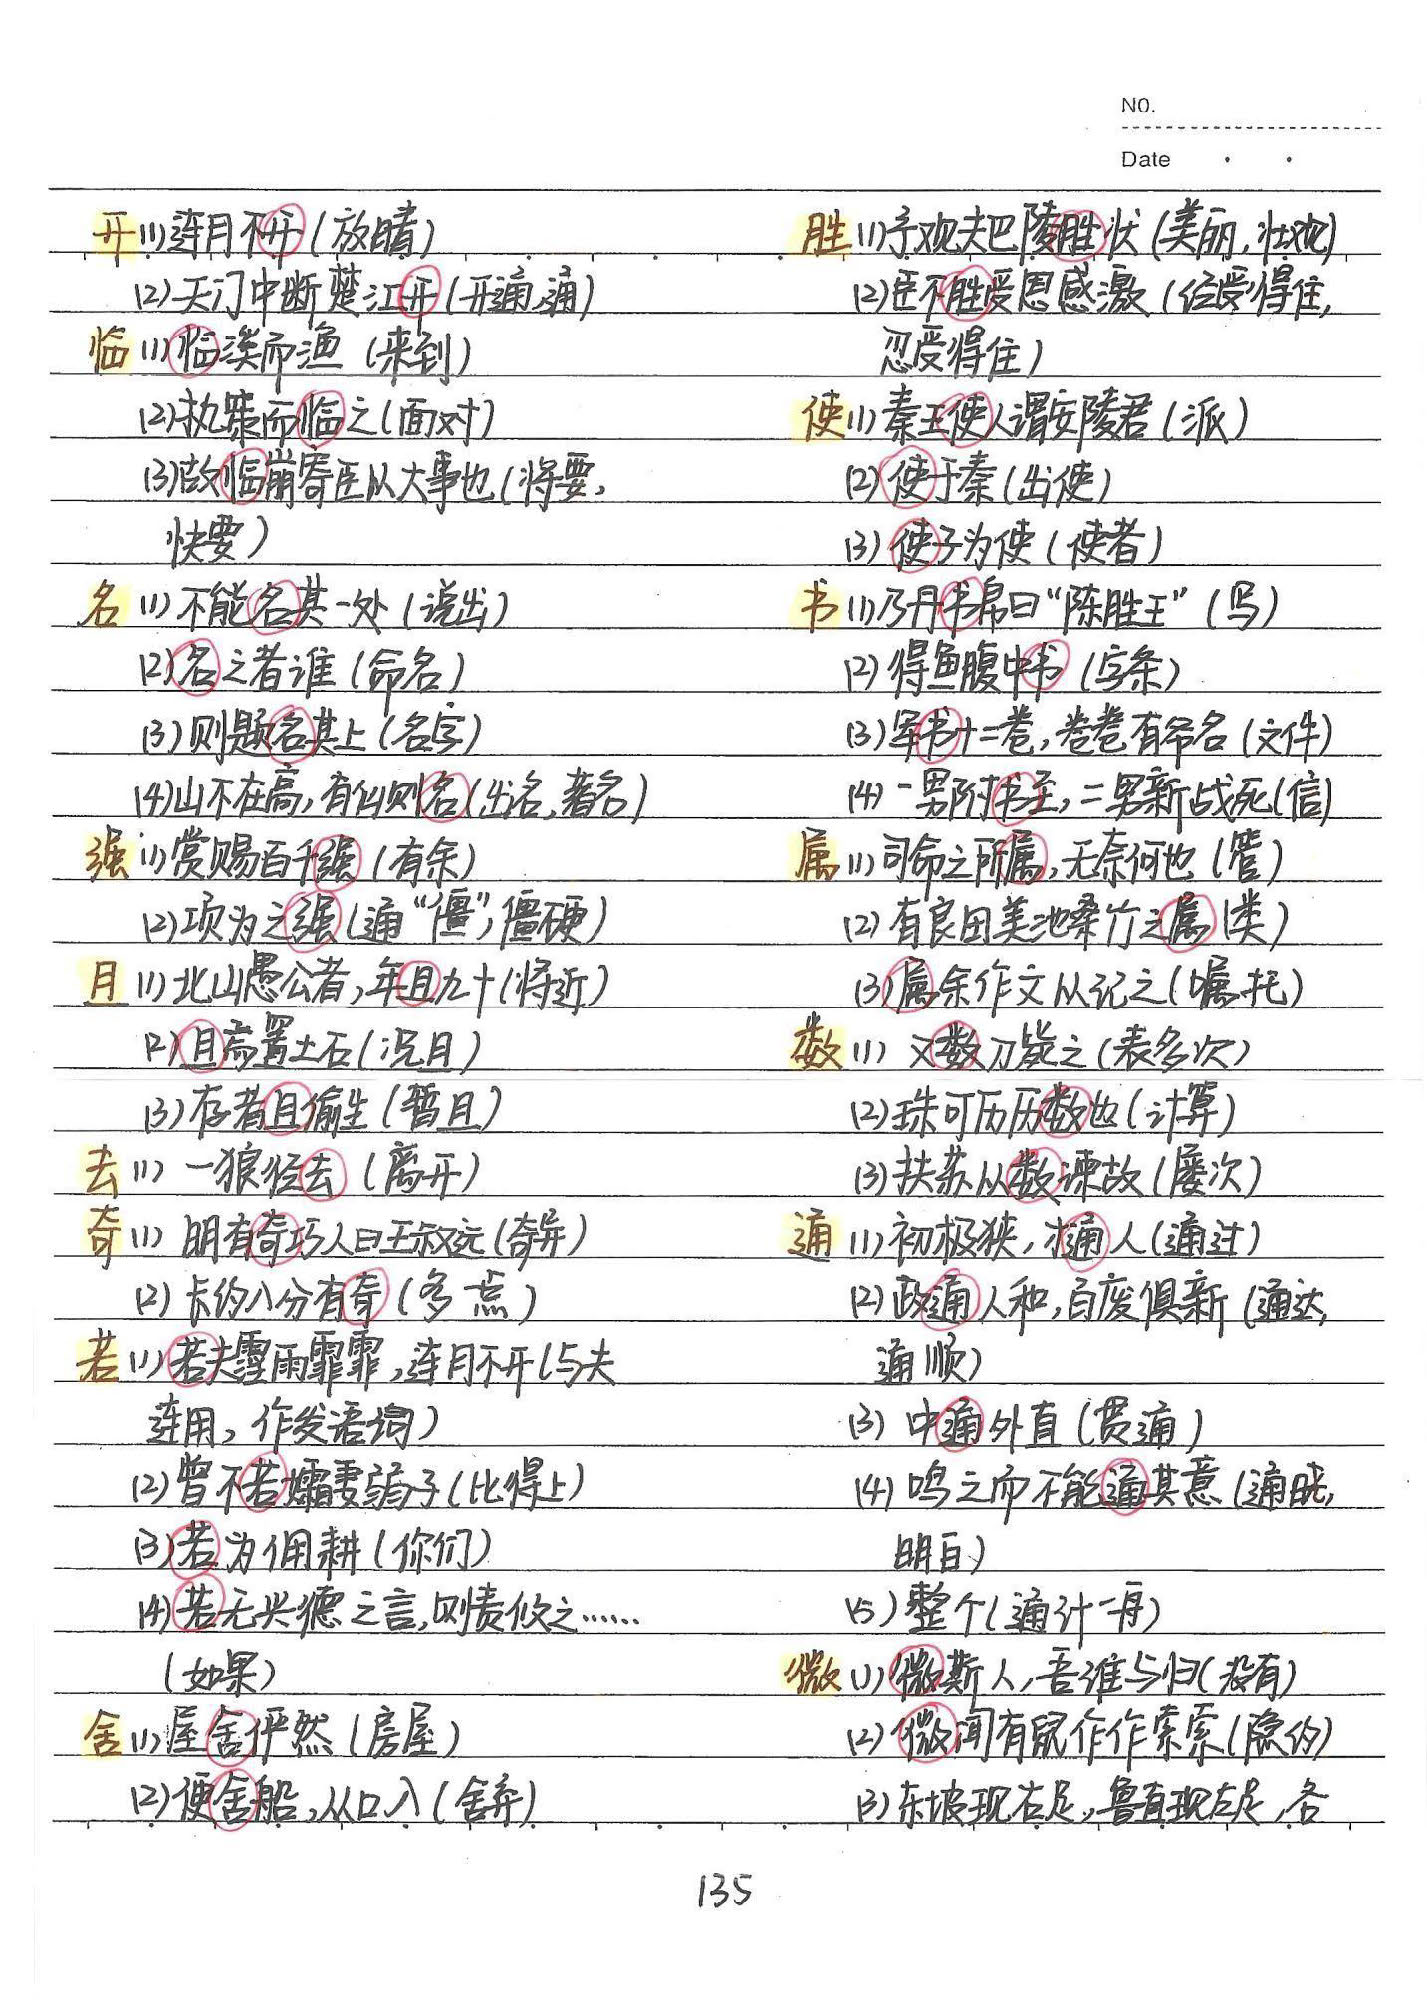 NO.
Date
开(1)连月不开(放晴)
(2)天门中断楚江开(开通,通)
临(1)临溪而渔(来到)
(2)执策而临之(面对)
(3)故临崩寄臣以大事也(将要,
快要)
名(1)不能名其一处(说出)
(2)名之者谁(命名)
(3)则题名其上(名字)
(4)山不在高,有仙则名(出名,著名)
强(1)赏赐百千强(有余)
(2)项为之强(通“僵”,僵硬)
且(1)北山愚公者,年且九十(将近)
(2)且焉置土石(况且)
(3)存者且偷生(暂且)
去(1)一狼径去(离开)
奇(1)明有奇巧人曰王叔远(奇异)
(2)长约八分有奇(多一点)
若(1)若夫霪雨霏霏,连月不开(与夫
连用,作发语词)
(2)曾不若孀妻弱子(比得上)
(3)若为佣耕(你们)
(4)若无兴德之言,则责攸之……
(如果)
舍(1)屋舍俨然(房屋)
(2)便舍船,从口入(舍弃)
胜(1)予观夫巴陵胜状(美丽,壮观)
(2)臣不胜受恩感激(经受得住,
忍受得住)
使(1)秦王使人谓安陵君(派)
(2)使于秦(出使)
(3)使子为使(使者)
书(1)乃丹书帛曰“陈胜王”(写)
(2)得鱼腹中书(字条)
(3)军书十二卷,卷卷有爷名(文件)
(4)一男附书至,二男新战死(信)
属(1)司命之所属,无奈何也(管)
(2)有良田美池桑竹之属(类)
(3)属余作文以记之(嘱托)
数(1)又数刀毙之(表多次)
(2)珠可历历数也(计算)
(3)扶苏以数谏故(屡次)
通(1)初极狭,才通人(通过)
(2)政通人和,百废俱新(通达,
通顺)
(3)中通外直(贯通)
(4)鸣之而不能通其意(通晓,
明白)
(5)整个(通计一舟)
微(1)微斯人,吾谁与归(没有)
(2)微闻有鼠作作索索(隐约)
(3)东坡现右足,鲁直现左足,各
135